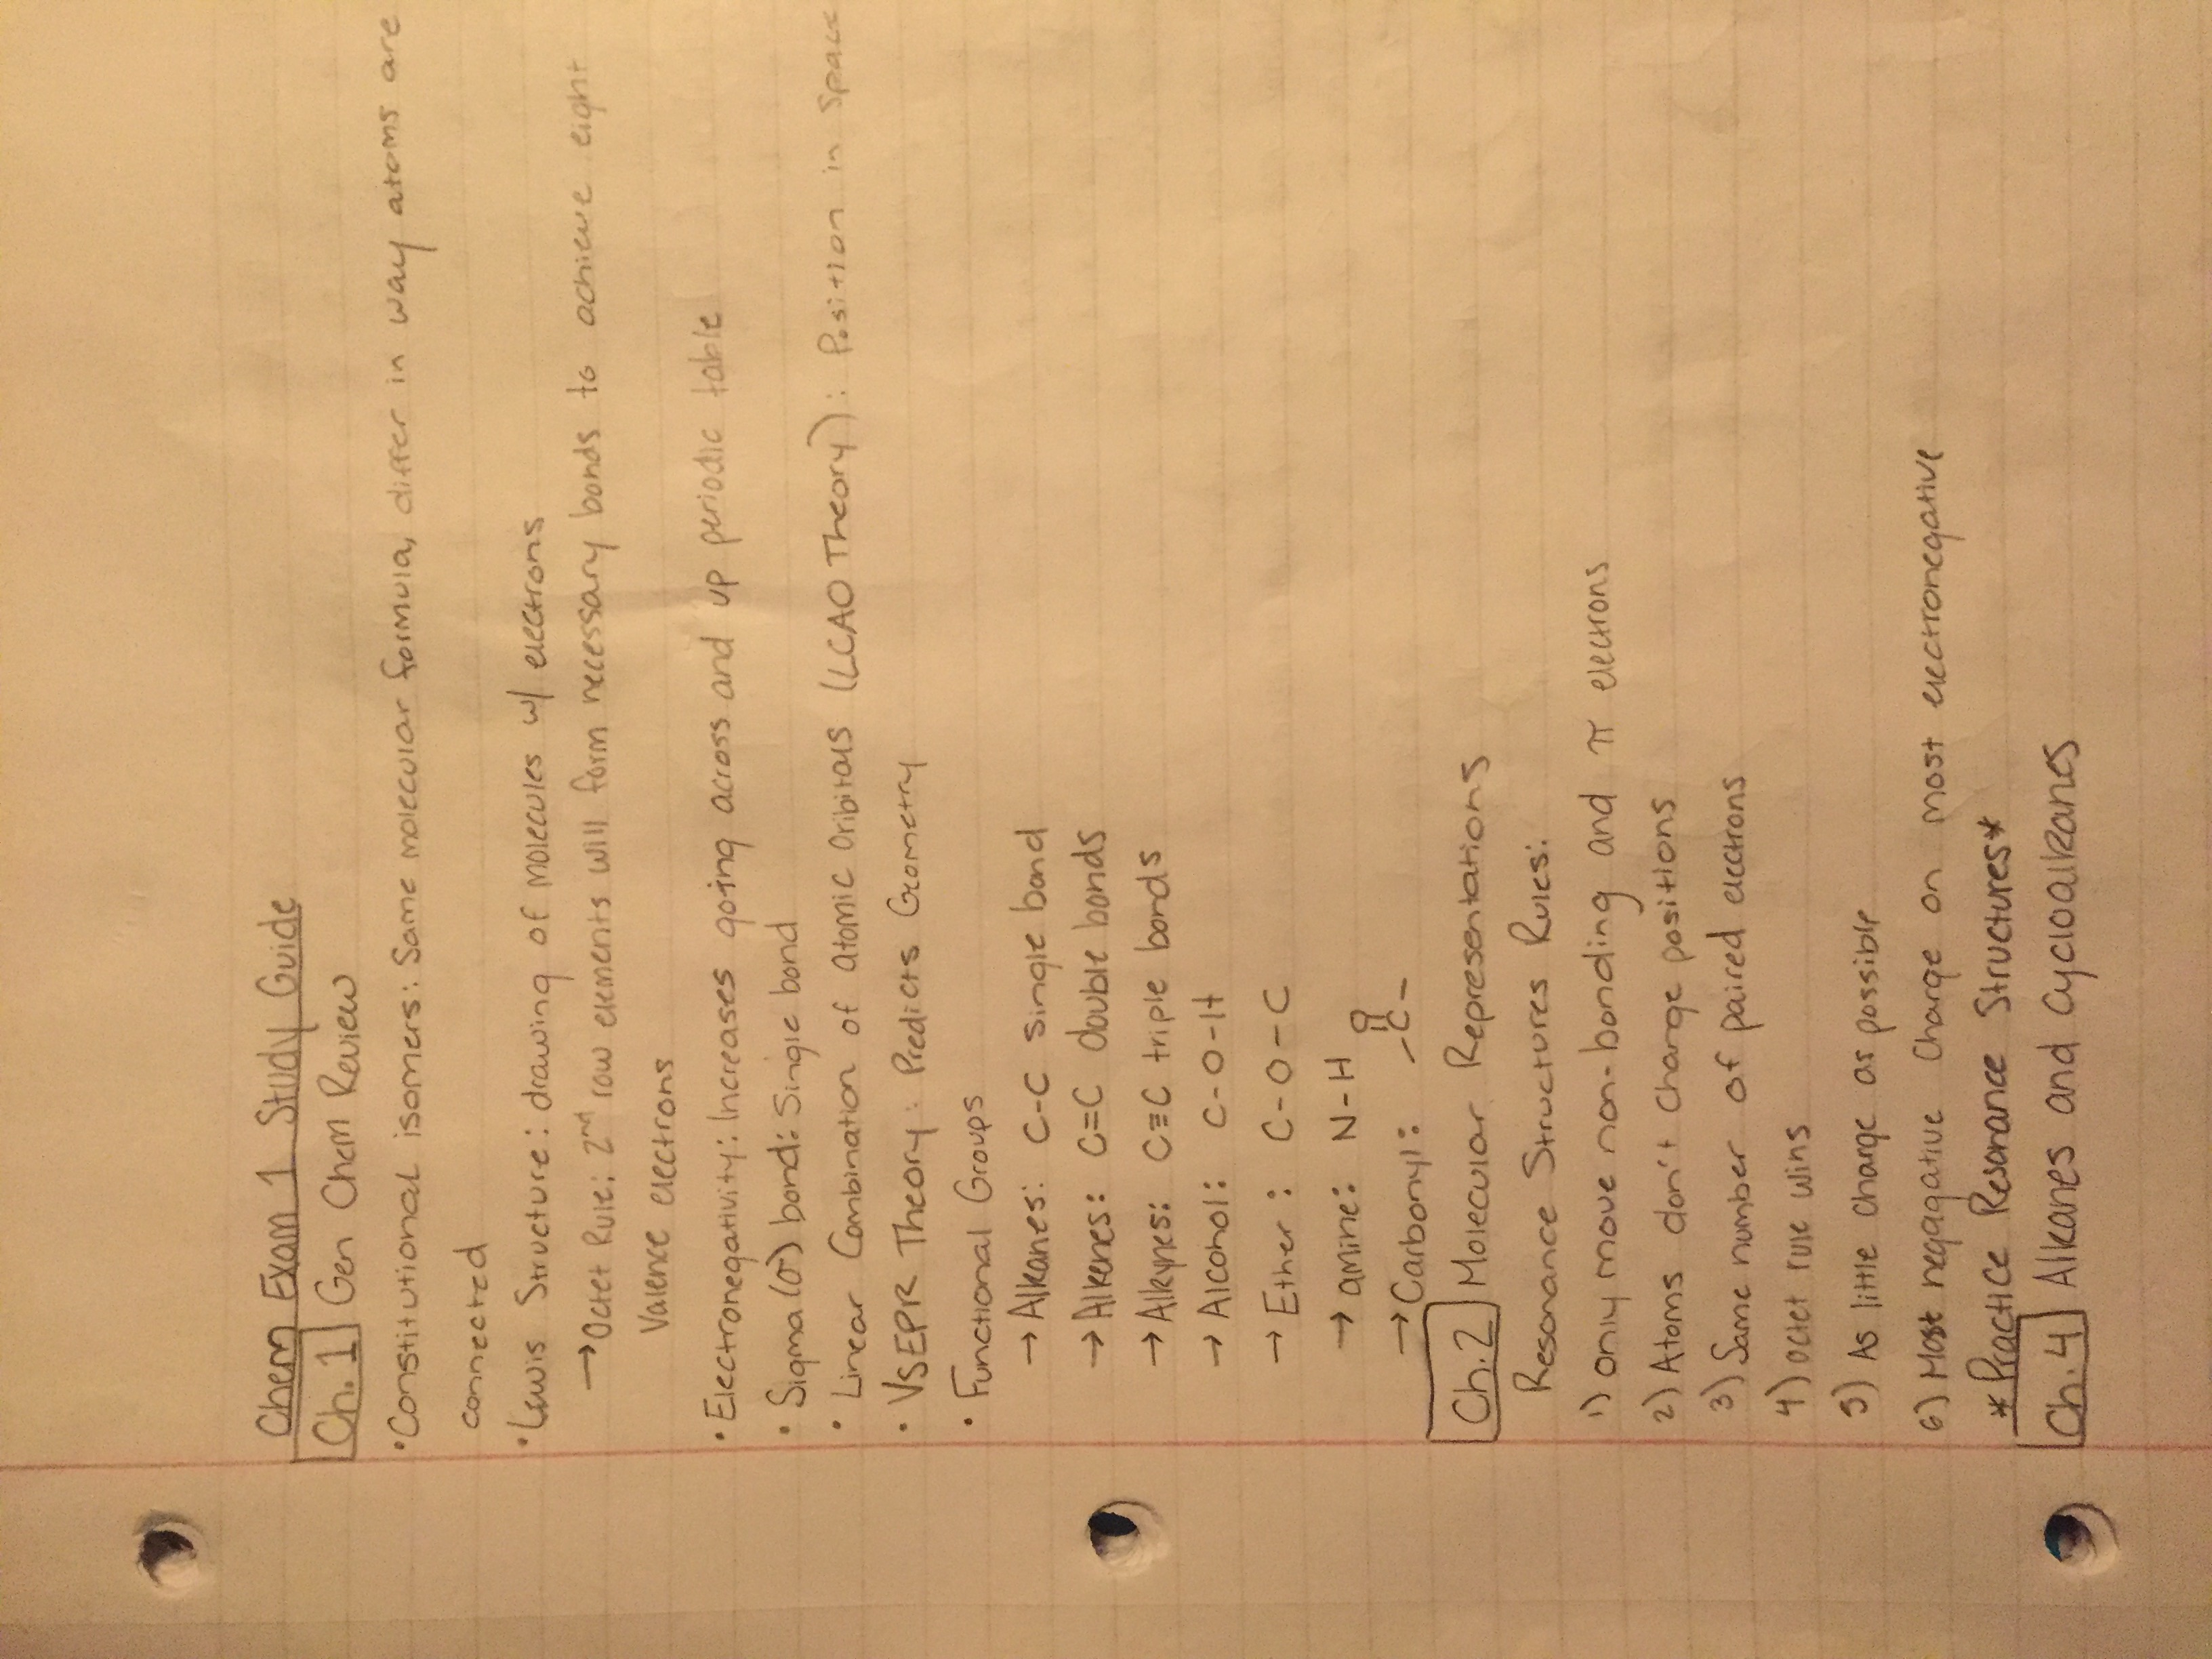 Chem Exam 1 Study Guide
Ch. 1 Gen Chem Review
• Constitutional isomers: Same molecular formula, differ in way atoms are
connected
• Lewis Structure: drawing of molecules w/ electrons
→ Octet Rule: 2nd row elements will form necessary bonds to achieve eight
Valence electrons
• Electronegativity: Increases going across and up periodic table
• Sigma (σ) bond: Single bond
• Linear Combination of Atomic Oribitals (LCAO Theory): Position in Space
• VSEPR Theory: Predicts Geometry
• Functional Groups
→ Alkanes: C-C single bond
→ Alkenes: C=C double bonds
→ Alkynes: C≡C triple bonds
→ Alcohol: C-O-H
→ Ether: C-O-C
→ amine: N-H
→ Carbonyl: O
-C-
Ch. 2 Molecular Representations
Resonance Structures Rules:
1) only move non-bonding and π electrons
2) Atoms don't change positions
3) Same number of paired electrons
4) octet rule wins
5) As little charge as possible
6) Most negagative charge on most electronegative
* Practice Resonance Structures *
Ch. 4 Alkanes and Cycloalkanes